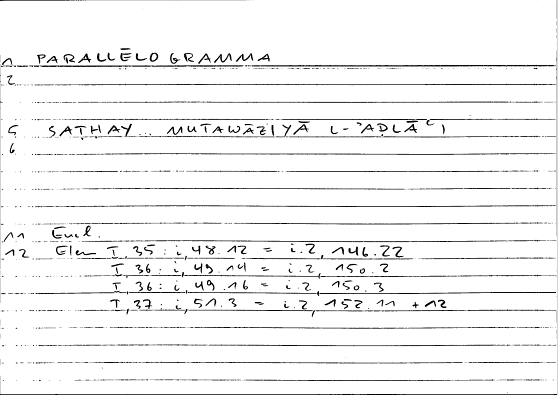 1 PARALLĒLOGRAMMA
2
5 SAṬḤAY... MUTAWĀZIYĀ L-'AḌLĀʿI
6
11 Eucl.
12 Elem I, 35 : i, 48.12 = i.2, 146.22
I, 36 : i, 49.14 = i.2, 150.2
I, 36 : i, 49.16 = i.2, 150.3
I, 37 : i, 51.3 = i.2, 152.11 + 12